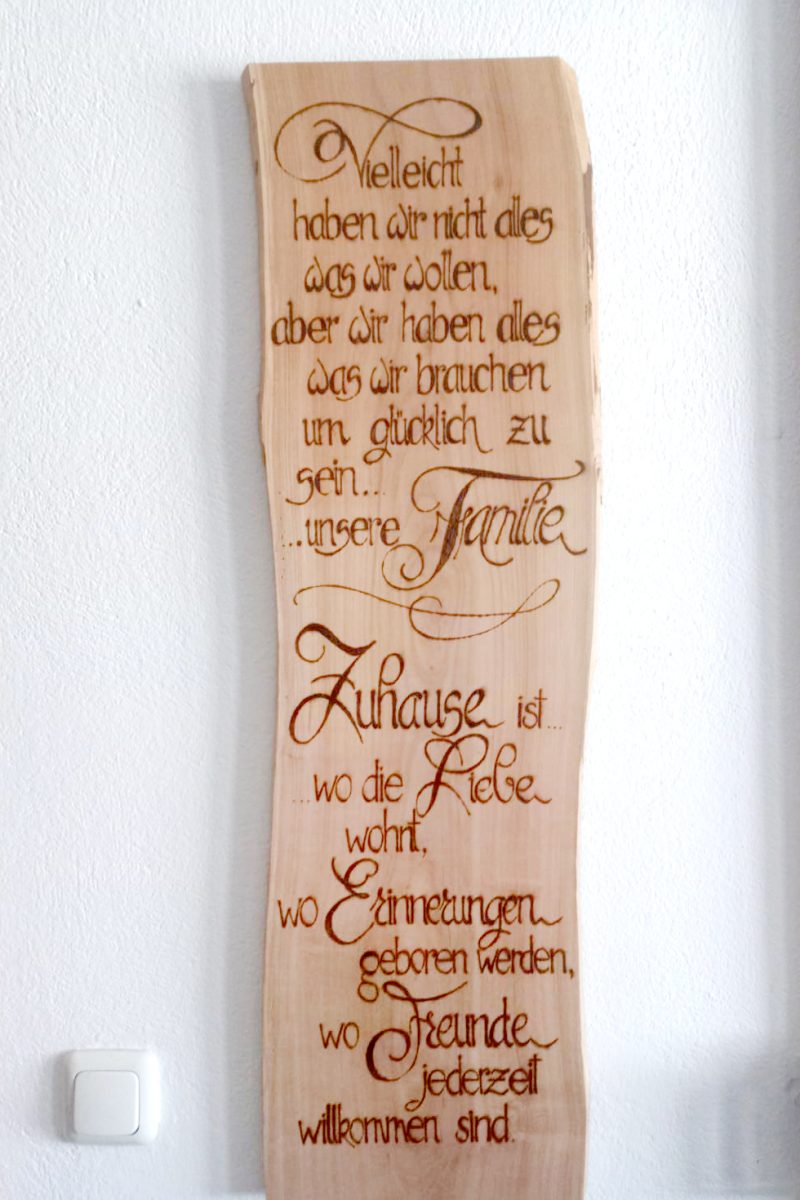 Vielleicht
haben wir nicht alles
was wir wollen,
aber wir haben alles
was wir brauchen
um glücklich zu
sein...
...unsere Familie
Zuhause ist...
...wo die Liebe
wohnt,
wo Erinnerungen
geboren werden,
wo Freunde
jederzeit
willkommen sind.